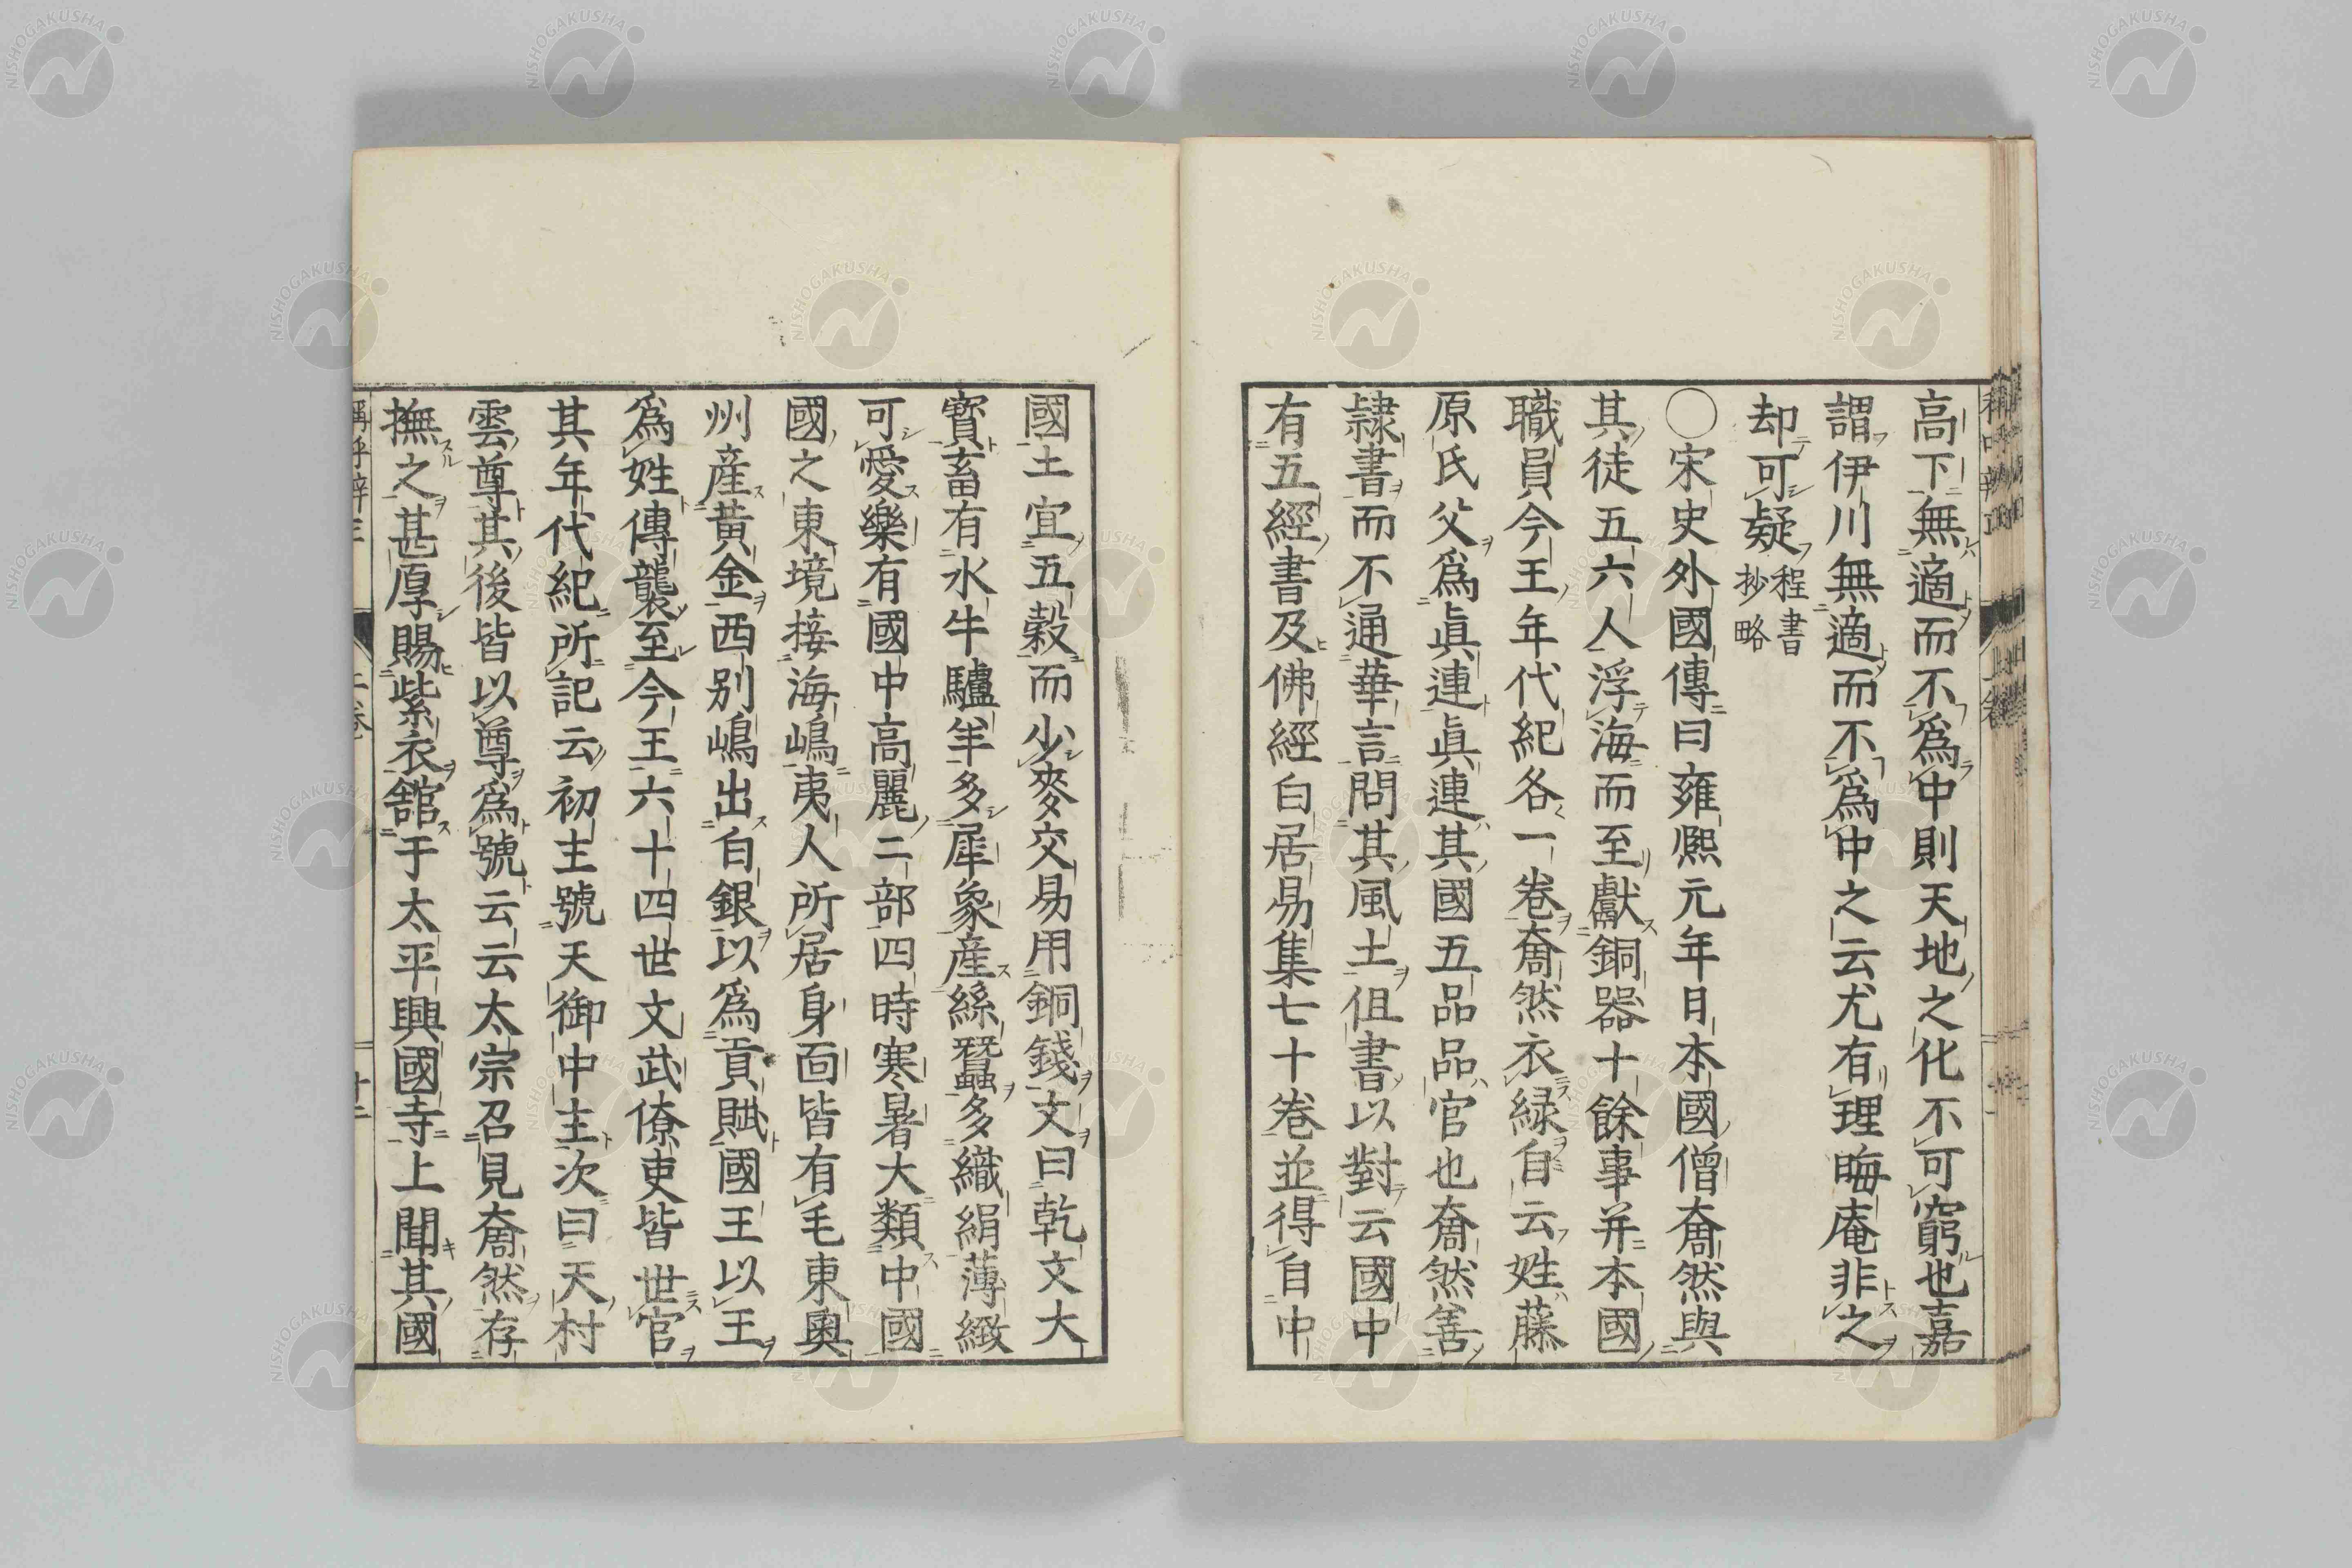 高下無適而不爲中則天地之化不可窮也嘉
謂伊川無適而不爲中之云尤有理晦庵非之
却可疑程書抄略
○宋史外國傳曰雍熙元年日本國僧奝然與
其徒五六人浮海而至獻銅器十餘事并本國
職員今王年代紀各一卷奝然衣緑自云姓藤
原氏父爲眞連眞連其國五品品官也奝然善
隷書而不通華言問其風土但書以對云國中
有五經書及佛經白居易集七十卷並得自中
國土宜五穀而少麥交易用銅錢文曰乾文大
寳畜有水牛驢羊多犀象産絲蠶多織絹薄緻
可愛樂有國中高麗二部四時寒暑大類中國
國之東境接海嶋夷人所居身面皆有毛東奥
州産黄金西別嶋出白銀以爲貢賦國王以王
爲姓傳襲至今王六十四世文武僚吏皆世官
其年代紀所記云初主號天御中主次曰天村
雲尊其後皆以尊爲號云云太宗召見奝然存
撫之甚厚賜紫衣舘于太平興國寺上聞其國
稱呼辨正
NISHOGAKUSHA